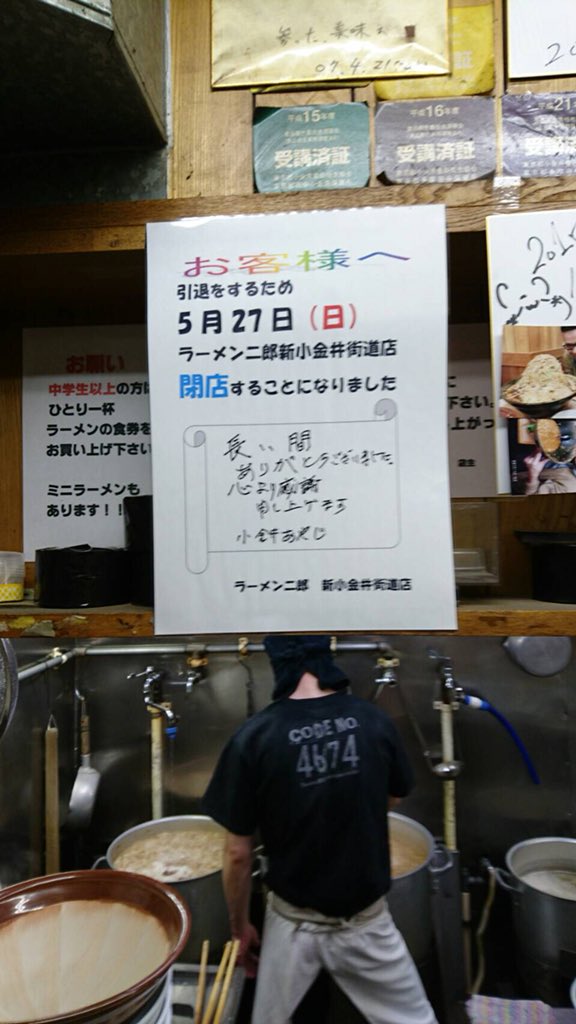 07.4.21
平成15年度
受講済証
平成16年度
受講済証
平成21
受講済
お客様へ
引退をするため
5月27日（日）
ラーメン二郎新小金井街道店
閉店することになりました
長い間
ありがとうございました
心より感謝
申し上げます
小金井あやじ
ラーメン二郎 新小金井街道店
お願い
中学生以上の方は
ひとり一杯
ラーメンの食券を
お買い上げ下さい
ミニラーメンも
あります！！
に
下さい。
上がっ
店主
CODE NO.
4674